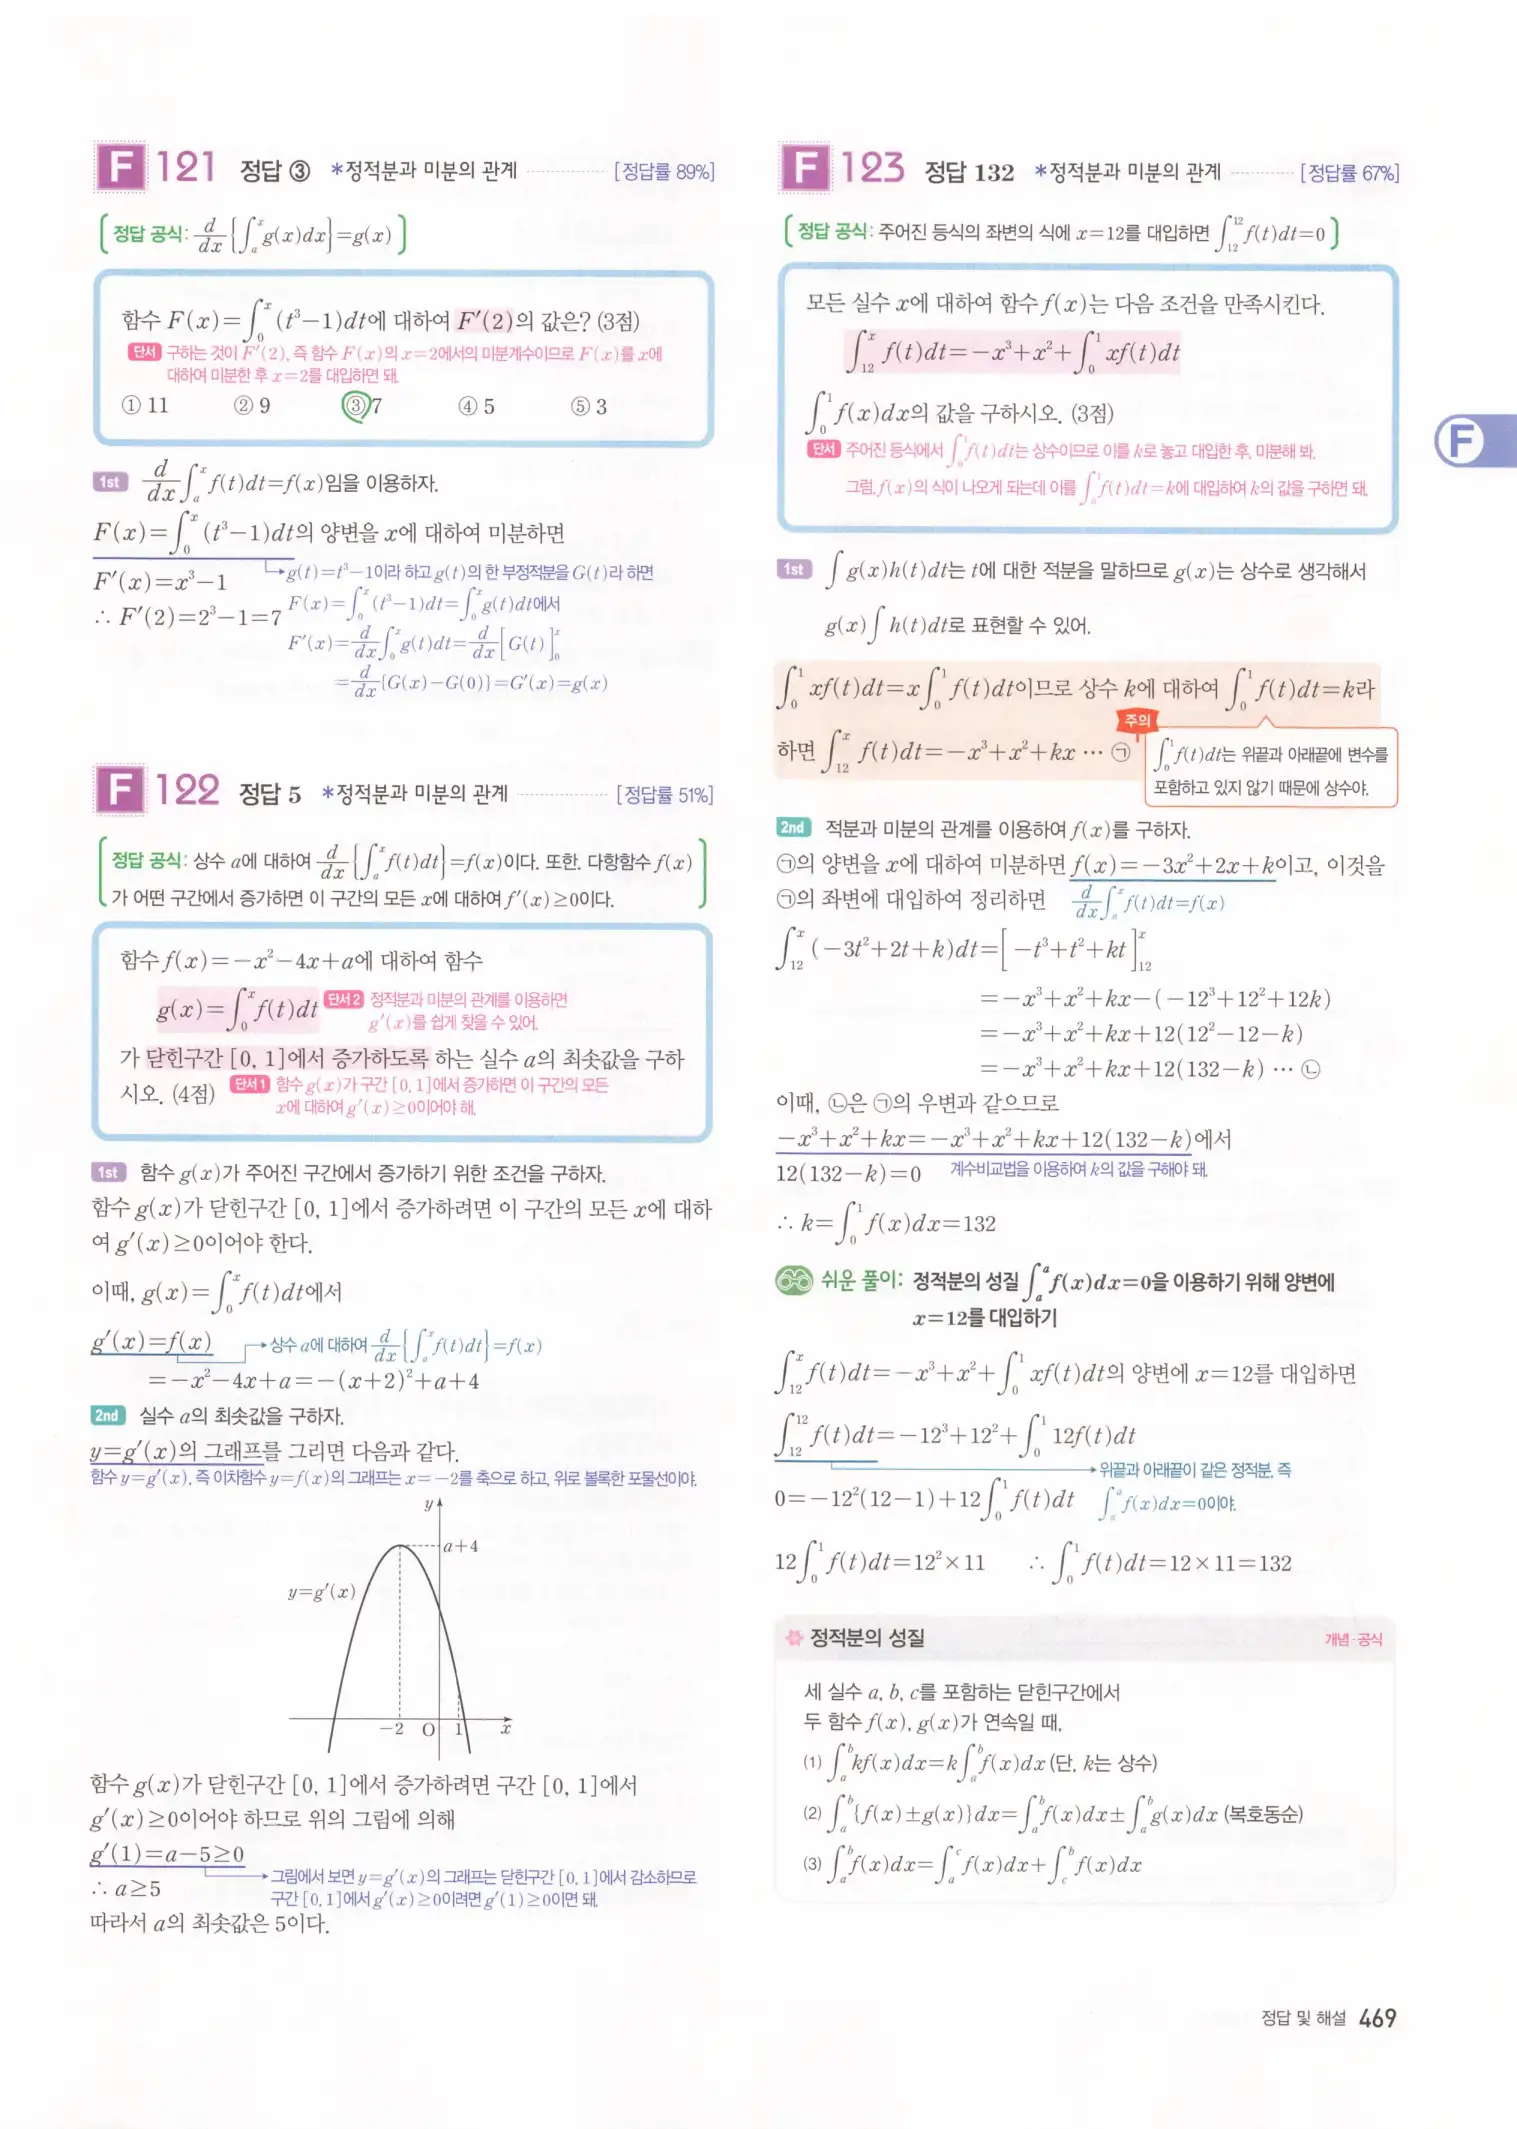 F 121 정답 ③ *정적분과 미분의 관계 [정답률 89%]
정답 공식: d/dx{∫ₐˣ g(x)dx}=g(x)
함수 F(x)=∫₀ˣ (t³−1)dt에 대하여 F′(2)의 값은? (3점)
단서 구하는 것이 F′(2), 즉 함수 F(x)의 x=2에서의 미분계수이므로 F(x)를 x에
대하여 미분한 후 x=2를 대입하면 돼.
① 11 ② 9 ③ 7 ④ 5 ⑤ 3
1st d/dx ∫ₐˣ f(t)dt=f(x)임을 이용하자.
F(x)=∫₀ˣ (t³−1)dt의 양변을 x에 대하여 미분하면
F′(x)=x³−1
g(t)=t³−1이라 하고 g(t)의 한 부정적분을 G(t)라 하면
∴ F′(2)=2³−1=7
F(x)=∫₀ˣ (t³−1)dt=∫₀ˣ g(t)dt에서
F′(x)=d/dx ∫₀ˣ g(t)dt=d/dx [G(t)]₀ˣ
=d/dx{G(x)−G(0)}=G′(x)=g(x)
F 122 정답 5 *정적분과 미분의 관계 [정답률 51%]
정답 공식: 상수 a에 대하여 d/dx{∫ₐˣ f(t)dt}=f(x)이다. 또한, 다항함수 f(x)
가 어떤 구간에서 증가하면 이 구간의 모든 x에 대하여 f′(x)≥0이다.
함수 f(x)=−x²−4x+a에 대하여 함수
g(x)=∫₀ˣ f(t)dt 단서2 정적분과 미분의 관계를 이용하면
g′(x)를 쉽게 찾을 수 있어.
가 닫힌구간 [0, 1]에서 증가하도록 하는 실수 a의 최솟값을 구하
시오. (4점) 단서1 함수 g(x)가 구간 [0, 1]에서 증가하면 이 구간의 모든
x에 대하여 g′(x)≥0이어야 해.
1st 함수 g(x)가 주어진 구간에서 증가하기 위한 조건을 구하자.
함수 g(x)가 닫힌구간 [0, 1]에서 증가하려면 이 구간의 모든 x에 대하
여 g′(x)≥0이어야 한다.
이때, g(x)=∫₀ˣ f(t)dt에서
g′(x)=f(x) 상수 a에 대하여 d/dx{∫ₐˣ f(t)dt}=f(x)
=−x²−4x+a=−(x+2)²+a+4
2nd 실수 a의 최솟값을 구하자.
y=g′(x)의 그래프를 그리면 다음과 같다.
함수 y=g′(x), 즉 이차함수 y=f(x)의 그래프는 x=−2를 축으로 하고, 위로 볼록한 포물선이야.
y
a+4
y=g′(x)
−2 O 1 x
함수 g(x)가 닫힌구간 [0, 1]에서 증가하려면 구간 [0, 1]에서
g′(x)≥0이어야 하므로 위의 그림에 의해
g′(1)=a−5≥0
그림에서 보면 y=g′(x)의 그래프는 닫힌구간 [0, 1]에서 감소하므로
∴ a≥5
구간 [0, 1]에서 g′(x)≥0이려면 g′(1)≥0이면 돼.
따라서 a의 최솟값은 5이다.
F 123 정답 132 *정적분과 미분의 관계 [정답률 67%]
정답 공식: 주어진 등식의 좌변의 식에 x=12를 대입하면 ∫₁₂¹² f(t)dt=0
모든 실수 x에 대하여 함수 f(x)는 다음 조건을 만족시킨다.
∫₁₂ˣ f(t)dt=−x³+x²+∫₀¹ xf(t)dt
∫₀¹ f(x)dx의 값을 구하시오. (3점)
단서 주어진 등식에서 ∫₀¹ f(t)dt는 상수이므로 이를 k로 놓고 대입한 후, 미분해 봐.
그럼, f(x)의 식이 나오게 되는데 이를 ∫₀¹ f(t)dt=k에 대입하여 k의 값을 구하면 돼.
1st ∫g(x)h(t)dt는 t에 대한 적분을 말하므로 g(x)는 상수로 생각해서
g(x)∫h(t)dt로 표현할 수 있어.
∫₀¹ xf(t)dt=x∫₀¹ f(t)dt이므로 상수 k에 대하여 ∫₀¹ f(t)dt=k라
주의
하면 ∫₁₂ˣ f(t)dt=−x³+x²+kx ⋯ ㉠
∫₀¹ f(t)dt는 위끝과 아래끝에 변수를
포함하고 있지 않기 때문에 상수야.
2nd 적분과 미분의 관계를 이용하여 f(x)를 구하자.
㉠의 양변을 x에 대하여 미분하면 f(x)=−3x²+2x+k이고, 이것을
㉠의 좌변에 대입하여 정리하면 d/dx ∫ₐˣ f(t)dt=f(x)
∫₁₂ˣ (−3t²+2t+k)dt=[−t³+t²+kt]₁₂ˣ
=−x³+x²+kx−(−12³+12²+12k)
=−x³+x²+kx+12(12²−12−k)
=−x³+x²+kx+12(132−k) ⋯ ㉡
이때, ㉡은 ㉠의 우변과 같으므로
−x³+x²+kx=−x³+x²+kx+12(132−k)에서
12(132−k)=0 계수비교법을 이용하여 k의 값을 구해야 돼.
∴ k=∫₀¹ f(x)dx=132
쉬운 풀이: 정적분의 성질 ∫ₐᵃ f(x)dx=0을 이용하기 위해 양변에
x=12를 대입하기
∫₁₂ˣ f(t)dt=−x³+x²+∫₀¹ xf(t)dt의 양변에 x=12를 대입하면
∫₁₂¹² f(t)dt=−12³+12²+∫₀¹ 12f(t)dt
위끝과 아래끝이 같은 정적분, 즉
0=−12²(12−1)+12∫₀¹ f(t)dt ∫ₐᵃ f(x)dx=0이야.
12∫₀¹ f(t)dt=12²×11 ∴ ∫₀¹ f(t)dt=12×11=132
정적분의 성질 개념·공식
세 실수 a, b, c를 포함하는 닫힌구간에서
두 함수 f(x), g(x)가 연속일 때,
(1) ∫ₐᵇ kf(x)dx=k∫ₐᵇ f(x)dx (단, k는 상수)
(2) ∫ₐᵇ {f(x)±g(x)}dx=∫ₐᵇ f(x)dx±∫ₐᵇ g(x)dx (복호동순)
(3) ∫ₐᵇ f(x)dx=∫ₐᶜ f(x)dx+∫꜀ᵇ f(x)dx
F
정답 및 해설 469